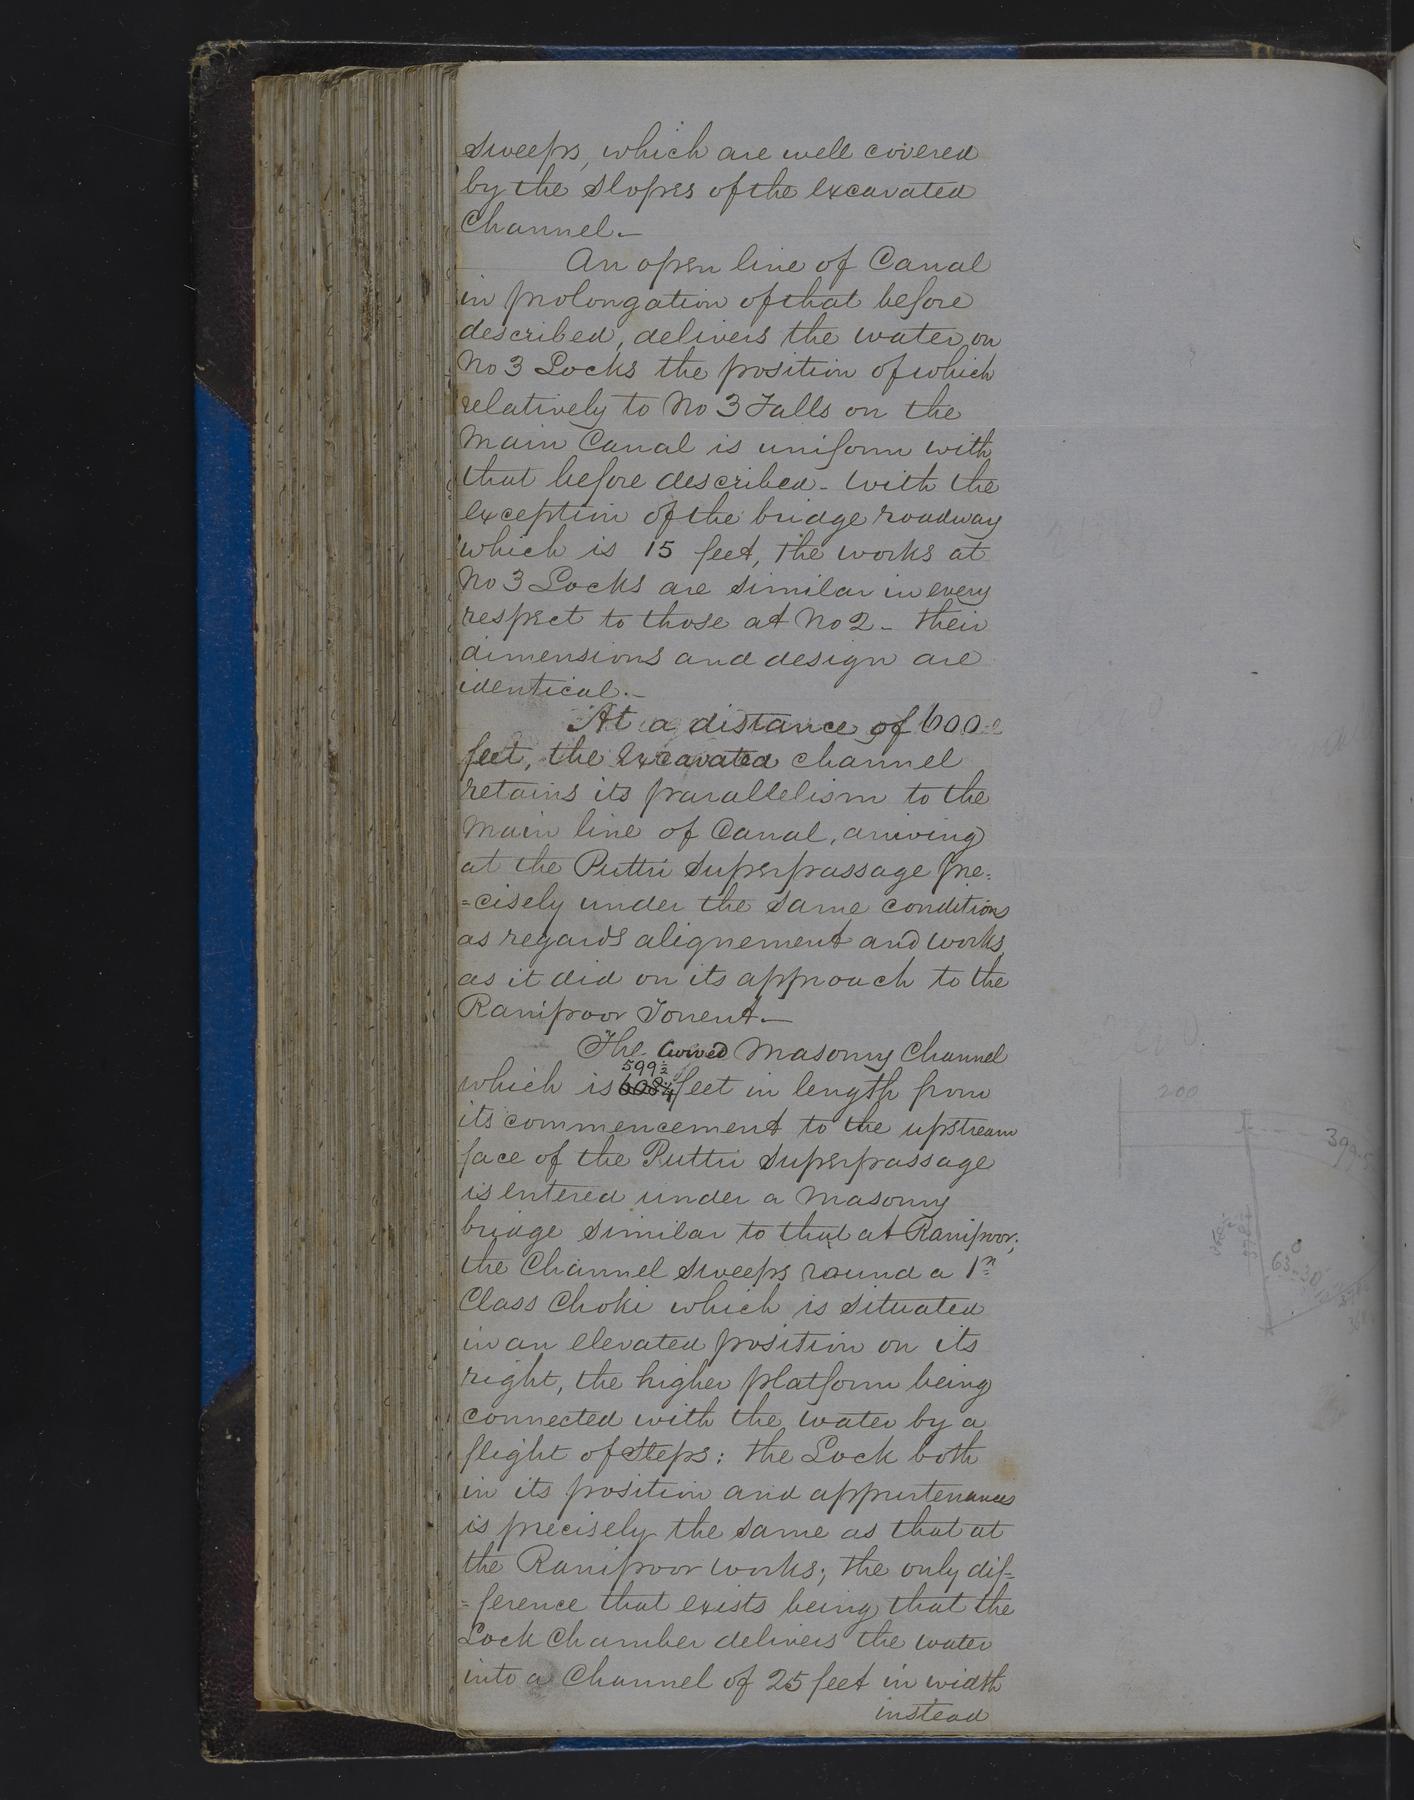 sweeps, which are well covered
by the slopes of the excavated
Channel.—
An open line of Canal
in prolongation of that before
described, delivers the water on
No 3 Locks the position of which
relatively to No 3 Falls on the
Main Canal is uniform with
that before described - With the
exception of the bridge roadway
which is 15 feet, the works at
No 3 Locks are similar in every
respect to those at No 2 - their
dimensions and design are
identical.—
At a distance of 600
feet, the excavated channel
retains its parallelism to the
Main line of Canal, arriving
at the Puttri Superpassage pre=
=cisely under the same conditions
as regards alignement and works
as it did on its approach to the
Ranipoor Torrent.—
The Curved Masonry Channel
599½
which is 608¼ feet in length from
its commencement to the upstream
face of the Puttri Superpassage
is entered under a Masonry
bridge similar to that at Ranipoor;
the Channel sweeps round a 1st
Class Choki which is situated
in an elevated position on its
right, the higher platform being
connected with the water by a
flight of steps: the Lock both
in its position and appurtenances
is precisely the same as that at
the Ranipoor works; the only dif=
=ference that exists being that the
Lock Chamber delivers the water
into a Channel of 25 feet in width
instead
200
399.5
63-30